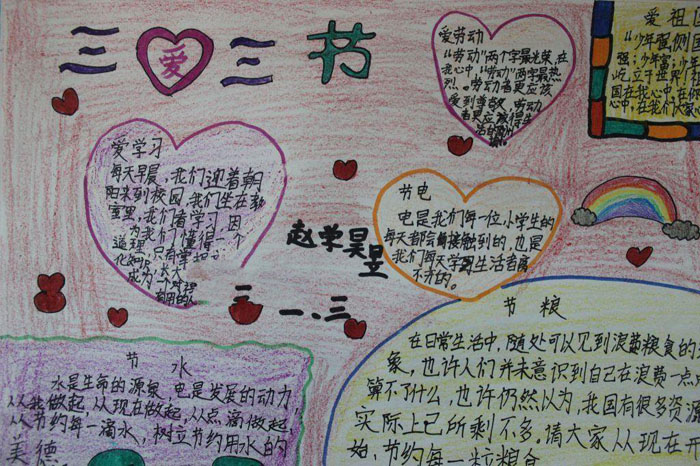 三爱三节
爱劳动
"劳动"两个字最光荣,在
我心中,"劳动"两字最热
烈。劳动者更应该
爱到尊敬,劳动
爱祖
"少年强则国
强;少年富
屹立于世界
国在我心中,在
心中,在我们大家
爱学习
每天早晨,我们迎着朝
阳来到校园,我们坐在教
室里,我们着学习,因
为我们懂得一个
道理,只有掌
化知识,长大
成为一个对
节电
电是我们每一位小学生的
每天都会间接触到的,也是
我们每天学到生活者离
不开的。
赵学昊昱
三一、三
节水
水是生命的源泉,电是发展的动力,
从我做起,从现在做起,从点滴做起,
从节约每一滴水,树立节约用水的
美德
节粮
在日常生活中,随处可以见到浪费粮食的
象,也许人们并未意识到自己在浪费一点
算不了什么,也许仍然以为,我国有很多资源
实际上已所剩不多。请大家从现在开
始,节约每一粒粮食